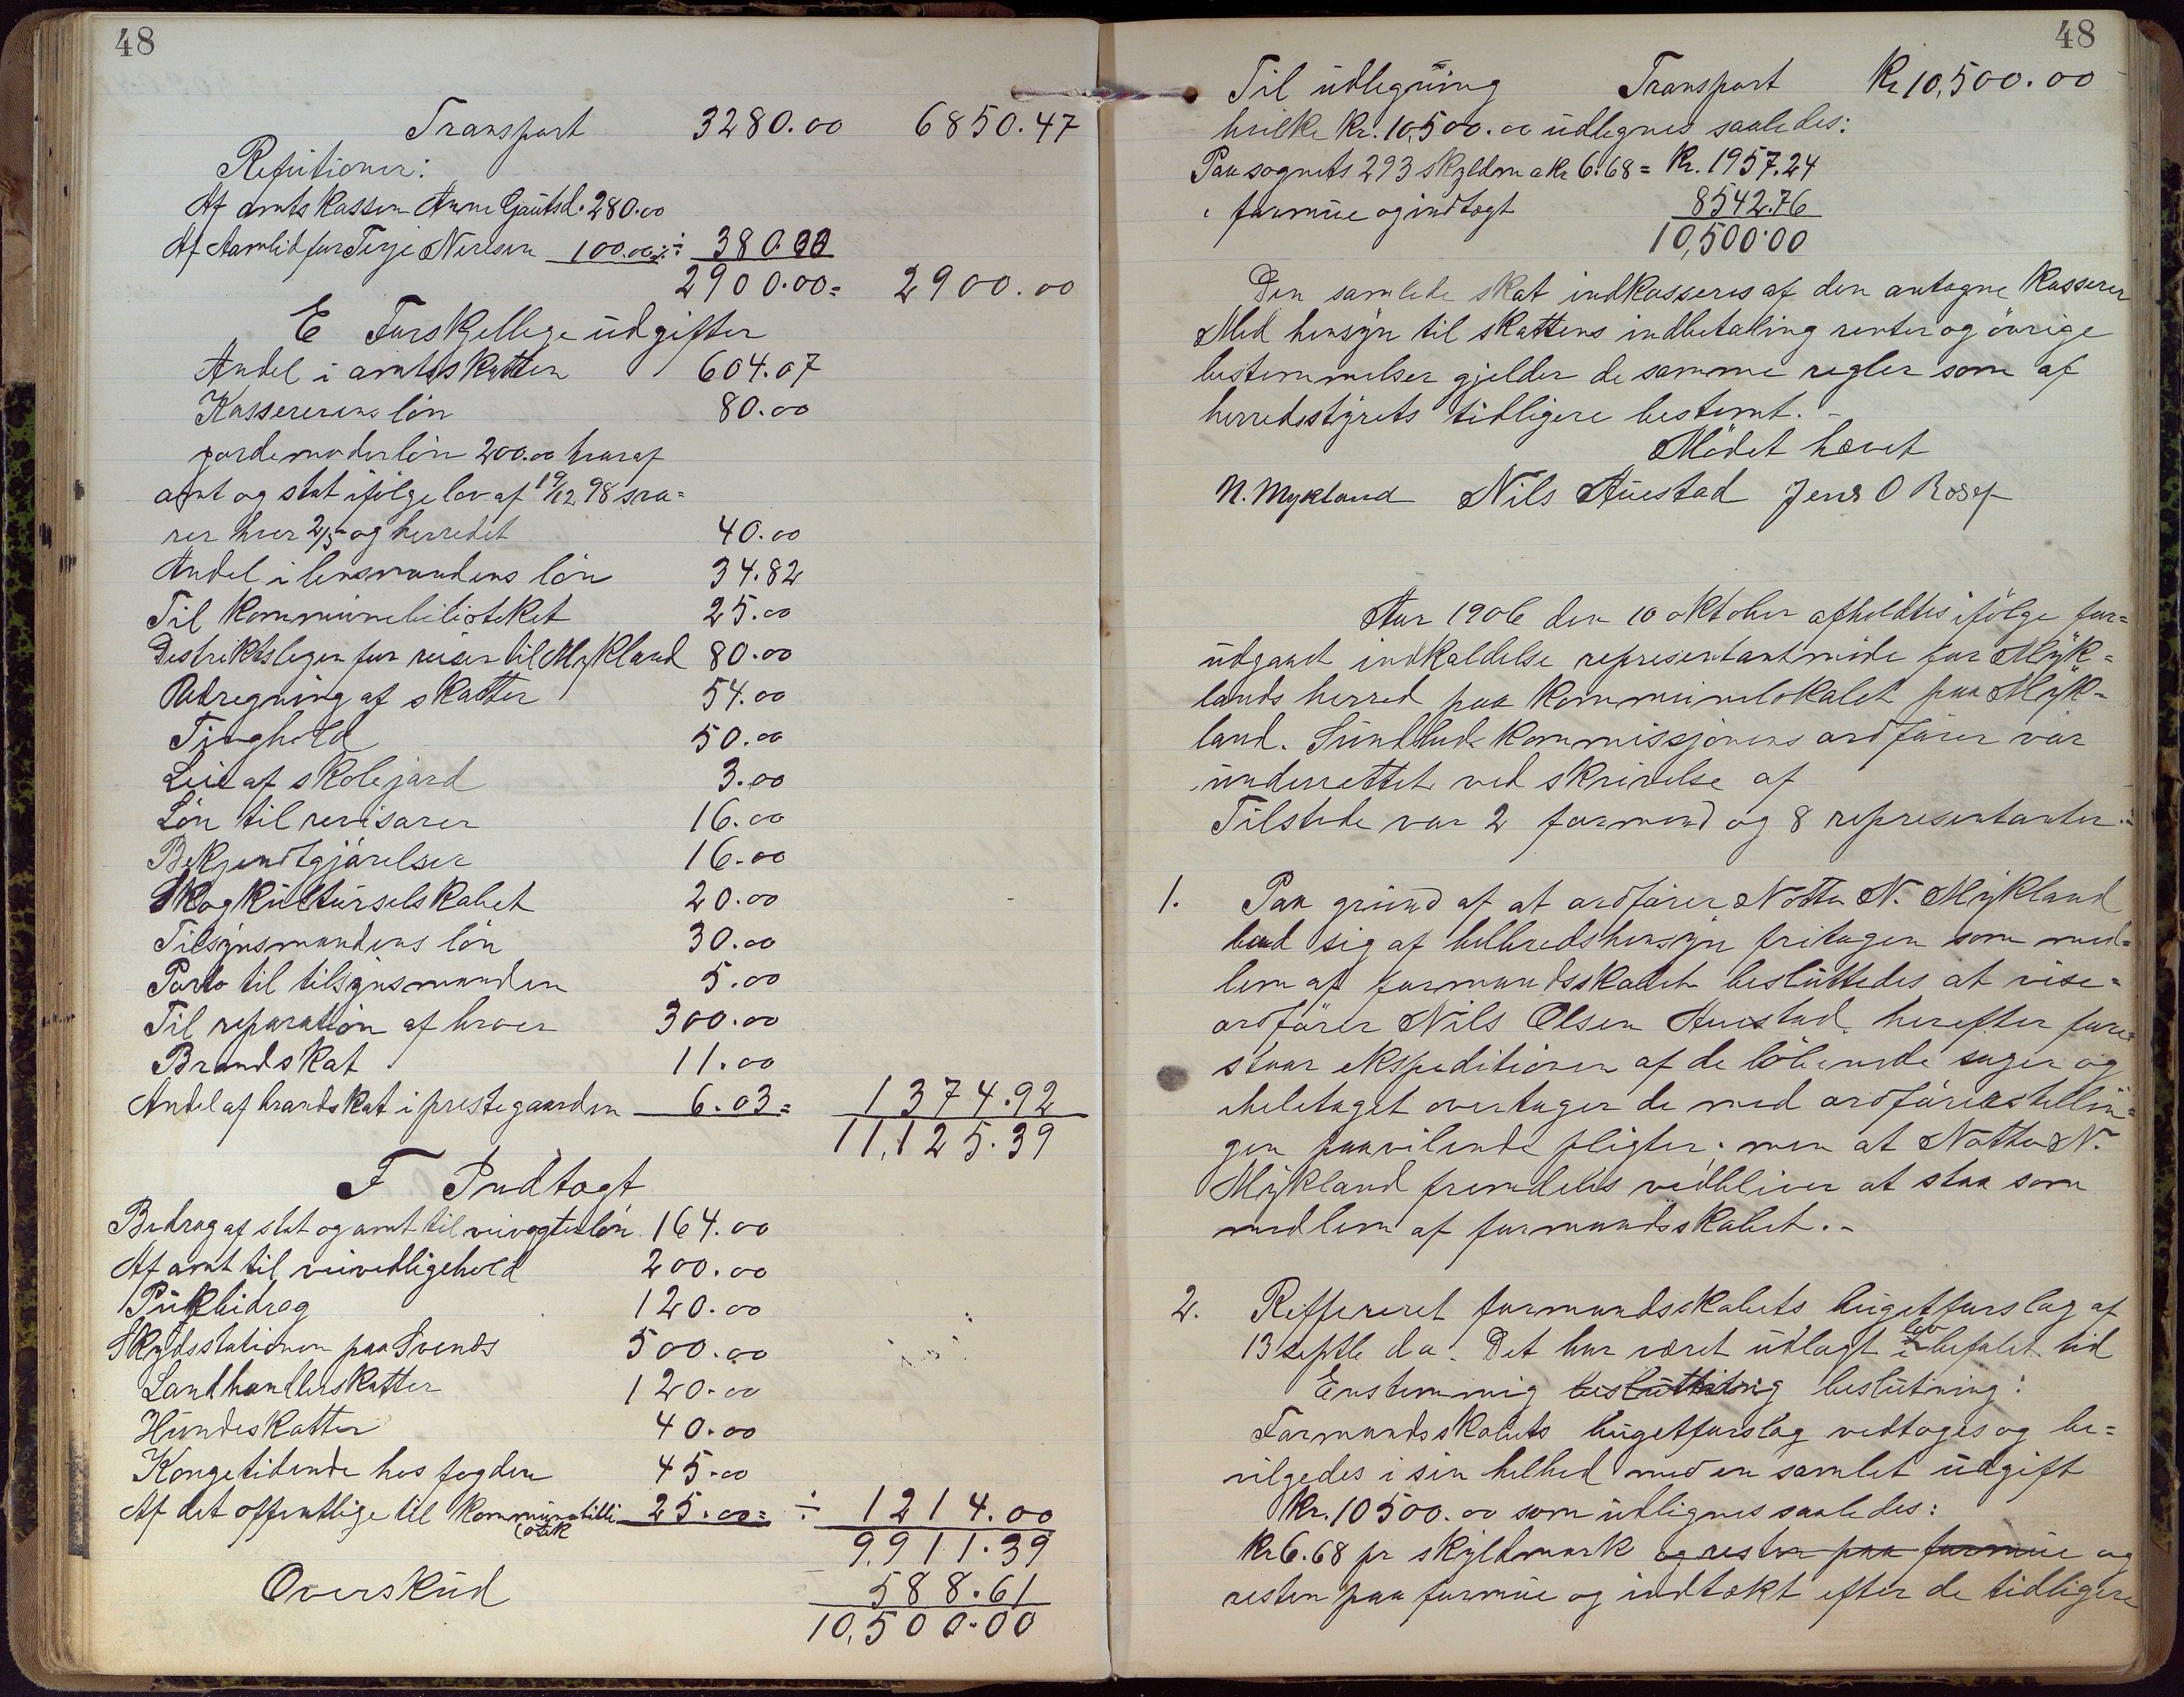 48
Transport 3280.00 6850.47
Refutioner:
Af amtskassen Anne Gautsd. 280.00
Af Aamlid for Terje Nirisen 100.00 ÷ 380.00
2900.00= 2900.00
E Forskjellege üdgifter
Andel i amtsskatten 604.07
Kassererens lön 80.00
jordemoderlön 200.00 hvoraf
amt og stat ifölge lov af 19/12 98 sva=
rer hver 2/5 og herredet 40.00
Andel i lensmandens lön 34.82
Til kommünebiblioteket 25.00
Distriktslegen for reiser til Mykland 80.00
Udregning af skatter 54.00
Tinghold 50.00
Leie af skolejord 3.00
Lön til revisorer 16.00
Bekjendtgjörelser 16.00
Skogkültürselskabet 20.00
Tilsynsmandens lön 30.00
Porto til tilsynsmanden 5.00
Til reparation af broer 300.00
Brandskat 11.00
Andel af brandskat i prestegaarden 6.03= 1374.92
11,125.39
F Indtægt
Bidrag af stat og amt til veivogterlön 164.00
Af amt til veivedligehold 200.00
120.00
Skydsstationen paa Svends 500.00
Landhandlerskatter 120.00
Hündeskatter 40.00
Kongetidende hos fogden 45.00
Af det offentlige til kommünebibli
otek 25.00= ÷ 1214.00
9,911.39
Overskud 588.61
10,500.00
48
Til üdlegning Transport Kr 10,500.00
hvilke Kr. 10,500.00 üdlegnes saaledes:
Paa sognets 293 skyldm a Kr 6.68 = Kr. 1957.24
" formüe og indtægt 8542.76
10,500.00
Den samlede skat indkasseres af den antagne kasserer
Med hensyn til skattens indbetaling renter og övrige
bestemmelser gjelder de samme regler som af
herredsstyrets tidligere bestemt. -
Mödet hævet
N. Mykland Nils Auestad Jens O Rosef
Aar 1906 den 10 oktober afholdtes ifölge for=
üdgaaet indkaldelse representantmöde for Myk=
lands herred paa kommünelokalet paa Myk=
land. Sündhedskommissjonens ordförer var
ünderrettet ved skrivelse af
Tilstede var 2 formend og 8 representanter.-
1. Paa gründ af at ordförer Notto N. Mykland
bad sig af helbredshensyn fritagen som med=
lem af formandsskabet beslüttedes at vise=
ordförer Nils Olsen Auestad herefter fore=
staar ekspeditionen af de löbende sager og
iheletaget overtager de med ordförerstellin=
gen paavilende pligter; men at Notto N.
Mykland fremdeles vedbliver at staa som
medlem af formandsskabet. -
2. Reffereret formandsskabets büdgetforslag af
13 septbr d a. Det har været üdlagt i lov befalet tid
Enstemmig beslüttning beslütning:
Formandsskabets büdgetforslag vedtages og be=
vilgedes i sin helhed med en samlet üdgift
Kr. 10500.00 som üdlignes saaledes:
Kr 6.68 pr skyldmark og resten paa formüe og
resten paa formüe og indtækt efter de tidligere